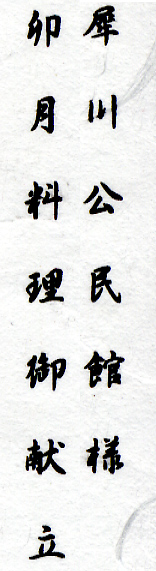 犀川公民館様
卯月料理御献立